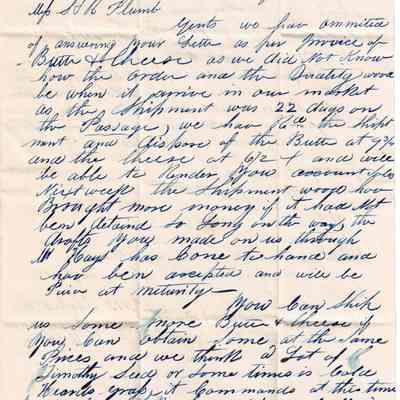 Mess S & R Plumb
Gents we hav ommitted
of answering your Letter as per Invoice of
Butter & Cheese as we did Not Know
how the order and the Quality wood
be when it arrive in our market
as the Shipment was 22 days on
the Passage, we hav Recd the Ship
ment and dispose of the Butter at 9½
and the cheese at 6½ and will
be able to Render you account sales
Next week the Shipment wood hav
Brought more money if it had Not
ben detaind so Long on the way, the
drafts you made on us through
Mr Hays has Come to hand and
hav ben accepted and will be
at maturity
You Can Ship
us Some more Butter & cheese if
you Can obtain some at the same
Prices and we think a Lot of
Timothy Seed or Some times is Cald
grass it Commands at this time